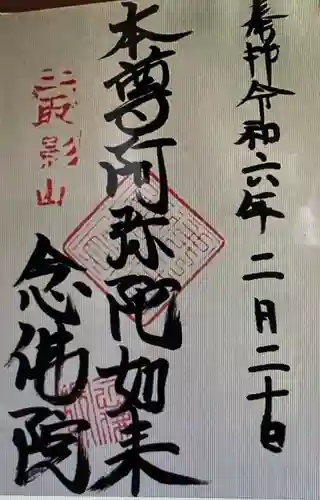 奉拝令和六年二月二十日
本尊阿弥陀如来
三最影山
念佛院